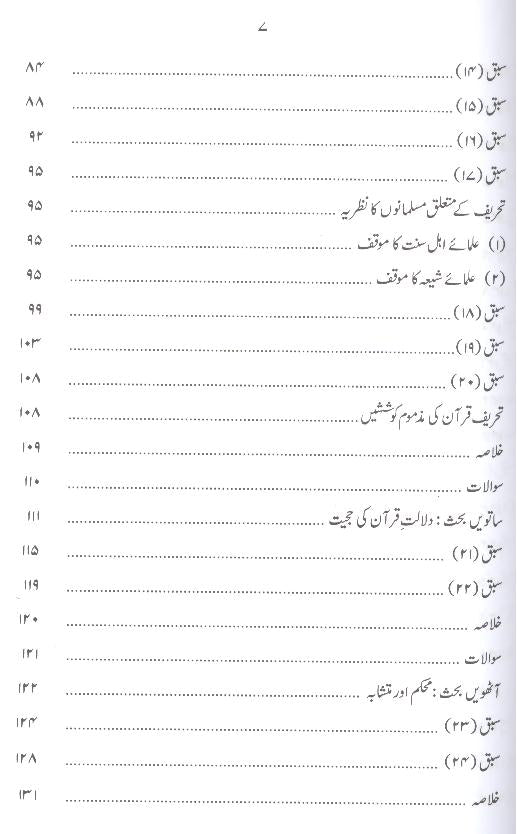 ۷
سبق (۱۴) ........ ۸۴
سبق (۱۵) ........ ۸۸
سبق (۱۶) ........ ۹۲
سبق (۱۷) ........ ۹۵
تحریف کے متعلق مسلمانوں کا نظریہ ........ ۹۵
(۱) علمائے اہل سنت کا موقف ........ ۹۵
(۲) علمائے شیعہ کا موقف ........ ۹۵
سبق (۱۸) ........ ۹۹
سبق (۱۹) ........ ۱۰۳
سبق (۲۰) ........ ۱۰۸
تحریف قرآن کی مذموم کوششیں ........ ۱۰۸
خلاصہ ........ ۱۰۹
سوالات ........ ۱۱۰
ساتویں بحث : دلالتِ قرآن کی حجیت ........ ۱۱۱
سبق (۲۱) ........ ۱۱۵
سبق (۲۲) ........ ۱۱۹
خلاصہ ........ ۱۲۰
سوالات ........ ۱۲۱
آٹھویں بحث : محکم اور متشابہ ........ ۱۲۲
سبق (۲۳) ........ ۱۲۴
سبق (۲۴) ........ ۱۲۸
خلاصہ ........ ۱۳۱